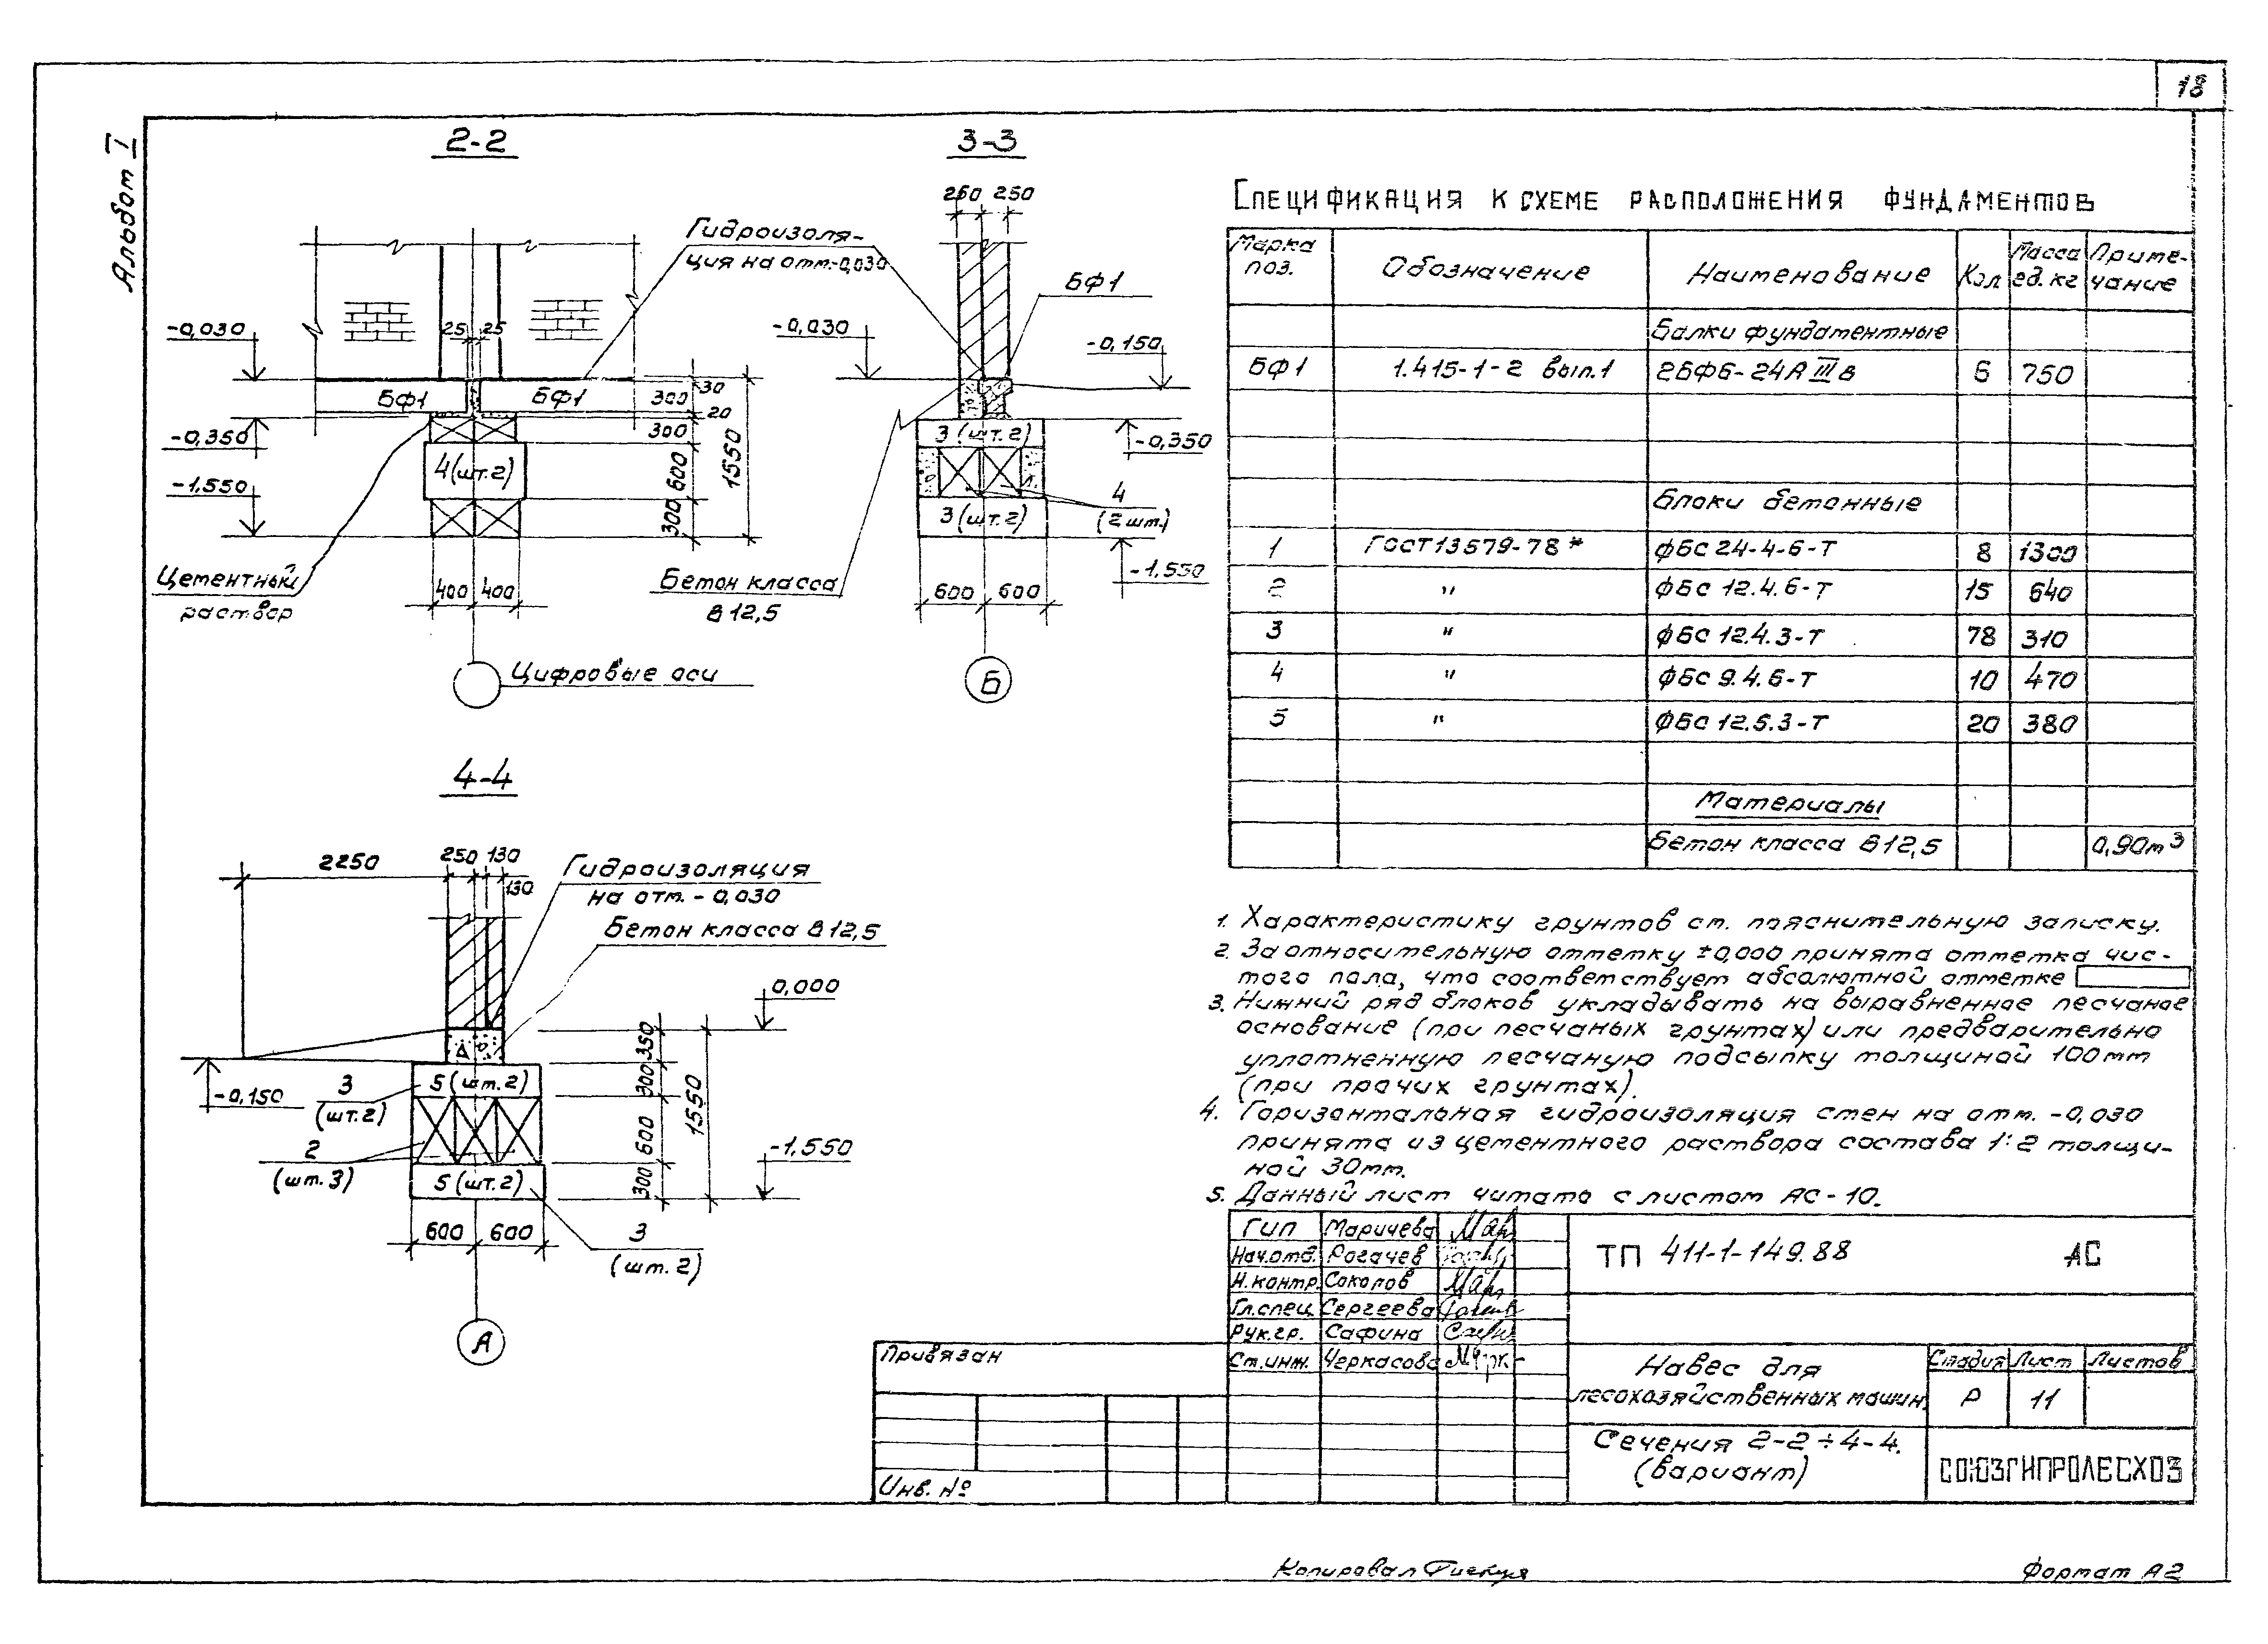 18
Альбом I
2-2
Гидроизоля-
ция на отм.-0,030
25 25
-0,030
БФ1 БФ1
-0,350
4(шт.2)
-1,550
30
300
20
300
600
300
1550
Цементный
раствор
400 400
Цифровые оси
3-3
250 250
БФ1
-0,030
-0,150
3 (шт.2)
-0,350
4
(2шт.)
3 (шт.2)
-1,550
Бетон класса
В12,5
600 600
Б
4-4
2250
250 130
130
Гидроизоляция
на отм. -0,030
Бетон класса В12,5
0,000
-0,150
3
(шт.2)
5 (шт.2)
2
(шт.3)
5 (шт.2)
350
300
600
300
1550
-1,550
600 600
3
(шт.2)
А
Спецификация к схеме расположения фундаментов
Марка поз. Обозначение Наименование Кол Масса ед.кг Приме-чание
Балки фундаментные
БФ1 1.415-1-2 вып.1 2БФ6-24АIIIв 6 750
Блоки бетонные
1 ГОСТ13579-78* ФБС24-4-6-Т 8 1300
2 " ФБС 12.4.6-Т 15 640
3 " ФБС 12.4.3-Т 78 310
4 " ФБС 9.4.6-Т 10 470
5 " ФБС 12.5.3-Т 20 380
Материалы
Бетон класса В12,5 0,90м³
1. Характеристику грунтов см. пояснительную записку.
2. За относительную отметку ±0,000 принята отметка чис-
того пола, что соответствует абсолютной отметке
3. Нижний ряд блоков укладывать на выравненное песчаное
основание (при песчаных грунтах) или предварительно
уплотненную песчаную подсыпку толщиной 100мм
(при прочих грунтах).
4. Горизонтальная гидроизоляция стен на отм. -0,030
принята из цементного раствора состава 1:2 толщи-
ной 30мм.
5. Данный лист читать с листом АС-10.
ГИП Маричева
Нач.отд. Рогачев
Н.контр. Соколов
Гл.спец. Сергеева
Рук.гр. Сафина
Ст.инж. Черкасова
ТП 411-1-149.88 АС
Привязан
Инв. №
Навес для
лесохозяйственных машин.
Стадия Лист Листов
Р 11
Сечения 2-2÷4-4.
(вариант)
СОЮЗГИПРОЛЕСХОЗ
Копировал
Формат А2